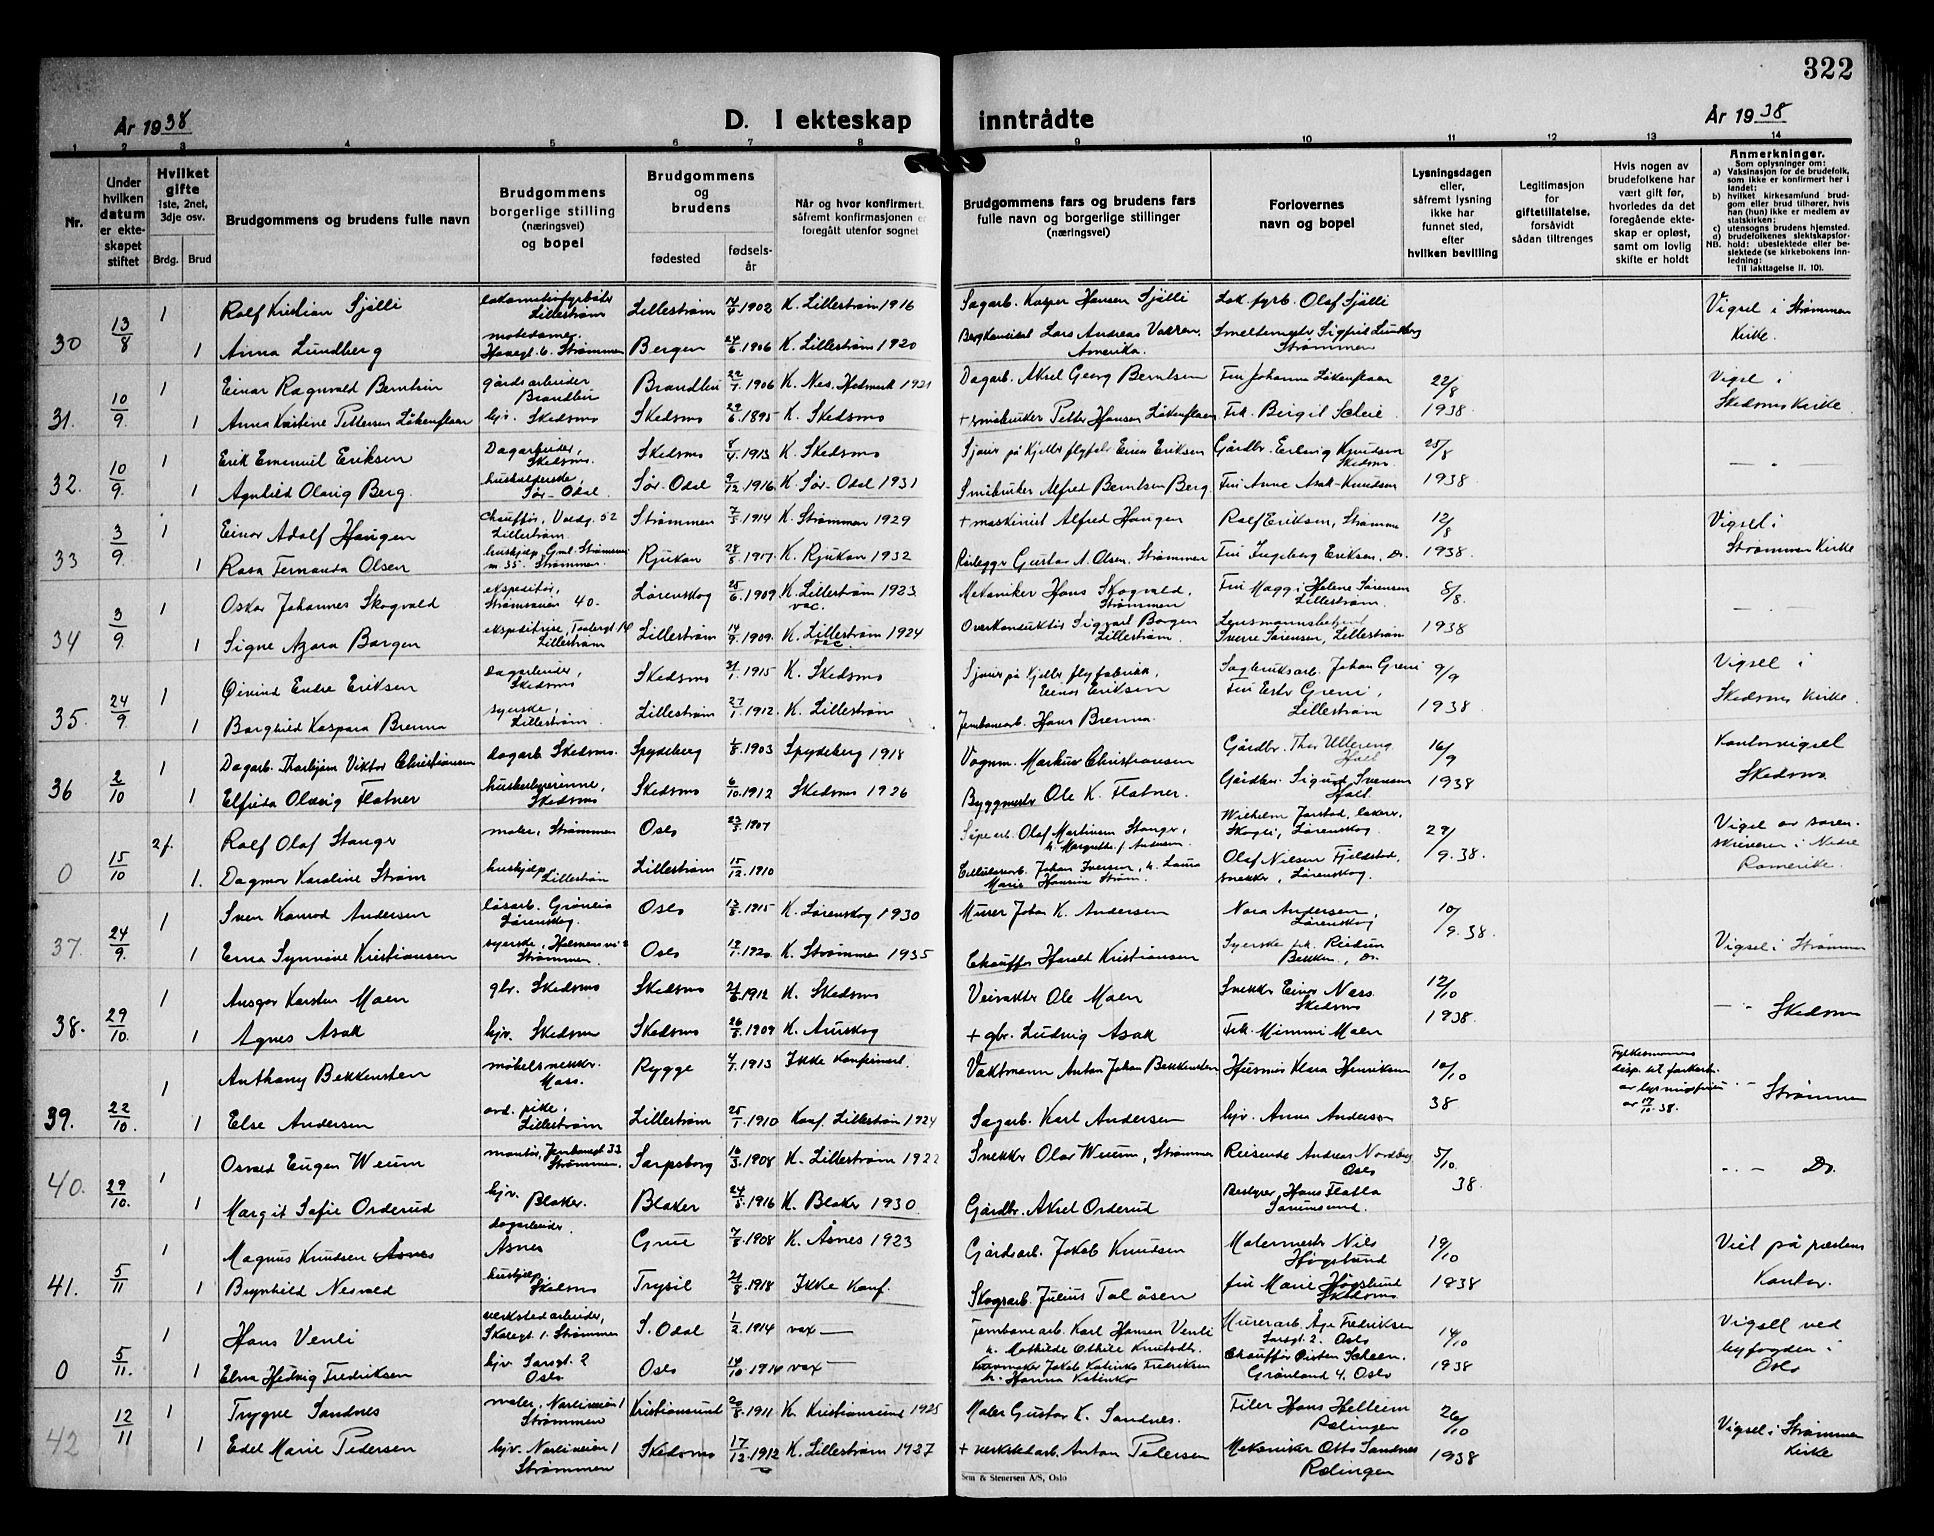 322
År 1938
D. I ekteskap inntrådte
År 1938
1 2 3 4 5 6 7 8 9 10 11 12 13 14
Nr.
Under hvilken datum er ekteskapet stiftet
Hvilket gifte 1ste, 2net, 3dje osv.
Brdg. Brud
Brudgommens og brudens fulle navn
Brudgommens borgerlige stilling (næringsvei) og bopel
Brudgommens og brudens
fødested
fødselsår
Når og hvor konfirmert, såfremt konfirmasjonen er foregått utenfor sognet
Brudgommens fars og brudens fars fulle navn og borgerlige stillinger (næringsvei)
Forlovernes navn og bopel
Lysningsdagen eller, såfremt lysning ikke har funnet sted, efter hvilken bevilling
Legitimasjon for giftetillatelse, forsåvidt sådan tiltrenges
Hvis nogen av brudefolkene har vært gift før, hvorledes da det foregående ekteskap er opløst, samt om lovlig skifte er holdt
Anmerkninger.
Som oplysninger om:
a) Vaksinasjon for de brudefolk, som ikke er konfirmert her i landet;
b) hvilket kirkesamfund brudgom eller brud tilhører, hvis han (hun) ikke er medlem av statskirken;
c) utensogns brudens hjemsted.
d) brudefolkenes slektskapsforhold: ubeslektede eller beslektede (se kirkebokens innledning:
NB. Til iakttagelse II. 10).
30 13/8 1 Rolf Kristian Sjølli lokomotivfyrbøter Lillestrøm Lillestrøm 1902 K. Lillestrøm 1916 Sagarb. Kasper Hansen Sjølli Lok. fyrb. Olaf Sjølli Vigsel i Strømmen Kirke.
1 Anna Lundberg Strømmen Bergen 1906 K. Lillestrøm 1920 Lars Andreas Amerika. Smeltemestr Sigfrid Lundberg Strømmen
31. 10/9 1 Einar Ragnvald Berntsen gårdsarbeider Brandbu Brandbu 22/7 1906 K. Nes, Hedmark 1921 Dagarb. Aksel Georg Berntsen Fru Johanne Løkenflaen 22/8 1938. Vigsel i Skedsmo Kirke
1 Anna Kristine Pettersen Løkenflaen hjv. Skedsmo Skedsmo 29/6 1895 K. Skedsmo + småbruker Petter Hansen Løkenflaen Frk. Birgit Scheie
32. 10/9 1 Erik Emanuel Eriksen Dagarbeider, Skedsmo. Skedsmo 8/4 1913 K. Skedsmo Sjauer på Kjeller flyfabr. Einar Eriksen Gårdbr. Erling Knudsen Skedsmo 25/8 1938. — " —
1 Agnhild Olavig Berg. Sør-Odal. Sør-Odal 9/12 1916 K. Sør-Odal 1931 Småbruker Alfred Berntsen Berg. Fru Anne Asak-Knudsen
33 3/9 1 Einar Adolf Haugen Chauffør, Voldg. 52 Lillestrøm Strømmen 7/5 1914 K. Strømmen 1929 + maskinist Alfred Haugen Rolf Eriksen, Strømmen 12/8 1938. Vigsel i Strømmen Kirke
1 Rosa Fernanda Olsen hushjelp, Gml. Strømsvei 35. Strømmen. Rjukan 28/8 1917 K. Rjukan 1932 Rørleggr Gustav A. Olsen, Strømmen Fru Ingeborg Eriksen, Do.
34 3/9 1 Oskar Johannes Skogvald ekspeditør, Strømsveien 40. Lørenskog 25/6 1909 K. Lillestrøm 1923 vac. Mekaniker Hans Skogvald, Strømmen Fru Maggi Helene Sørensen Lillestrøm. 8/8. 1938 — " —
1 Signe Azora Borgen ekspeditrise, Lillestrøm Lillestrøm 14/9 1909. K. Lillestrøm 1924 vac. Overkonduktør Sigvart Borgen Lillestrøm. Lensmannsbetjent Sverre Sørensen, Lillestrøm
35. 24/9 1 Øivind Endre Eriksen Dagarbeider, Skedsmo Skedsmo 31/1 1915 K. Skedsmo Sjauer på Kjeller flyfabrikk, Einar Eriksen Sagbruksarb. Johan Greni 9/9 1938. Vigsel i Skedsmo Kirke.
1 Borghild Kaspara Brenna syerske, Lillestrøm Lillestrøm 27/1 1912. K. Lillestrøm Jernbanearb. Hans Brenna. Fru Ester Greni, Lillestrøm
36 2/10 1 Dagarb. Thorbjørn Viktor Christiansen dagarb. Skedsmo. Spydeberg 1/8 1903 Spydeberg 1918 Vognm. Markus Christiansen Gårdbr. Thor Ullereng 16/9 1938 Kontorvigsel Skedsmo
1 Elfrida Olavig Flatner husbestyrerinne, Skedsmo Skedsmo 6/10 1912 Skedsmo 1926 Byggmestr Ole K. Flatner. Gårdbr. Sigurd Svensen
0 15/10 2f. Rolf Olaf Stange maler, Strømmen Oslo 23/5 1907 Olaf Martinsen Stange, h. Margrethe f. Andersen Wilhelm Jarstad, Lørenskog. 29/9.38. Vigsel av sorenskriveren i Nedre Romerike.
1. Dagmar Karoline Strøm hushjelp Lillestrøm Lillestrøm 15/12 1910 Cellulosearb. Johan Iversen, h. Laura Marie Hansine Strøm. Olaf Nielsen Fjeldstad, snekker, Lørenskog.
37. 24/9. 1 Sven Konrad Andersen Lørenskog. Oslo 13/8 1915 K. Lørenskog 1930 Murer Johan K. Andersen Nora Andersen, Lørenskog 10/9.38. Vigsel i Strømmen
1 Erna Synnøve Kristiansen syerske, Strømmen. Oslo 1920 K. Strømmen 1935 Chauffør Harald Kristiansen Syerske frk. Reidun Bekken, Do.
38. 29/10. 1 Ansgar Karsten Moen gbr. Skedsmo Skedsmo 21/6 1912 K. Skedsmo Veivokter Ole Moen Snekkr Einar Næss Skedsmo 12/10 1938. — " — Skedsmo
1 Agnes Asak hjv. Skedsmo Skedsmo 26/5 1909 K. Aurskog + gbr. Ludvig Asak Frk. Mimmi Moen
39. 22/10. 1 Anthony Bekkensten møbelsnekker. Moss. Rygge 4/7 1913 Ikke Konfirmert. Vaktmann Anton Johan Bekkensten Husmor Klara Henriksen 10/10 38 Fylkesmannens disp. til av 17/10.38. — " — Strømmen
1 Else Andersen Lillestrøm Lillestrøm 25/1 1910 Konf. Lillestrøm 1924 Sagarb. Karl Andersen hjv. Anna Andersen
40. 29/10. 1 Osvald Eugen Weum montør, Jernbanegt 33 Strømmen. Sarpsborg 16/3 1908 K. Lillestrøm 1922 Snekkr Olav Weum, Strømmen Reisende Andreas Nordberg Oslo 5/10. 38. — " — Do.
1 Margit Sofie Orderud hjv. Blaker. Blaker 24/5 1916 K. Blaker 1930. Gårdbr. Aksel Orderud Bestyrer Hans Flatla Sørumsand.
41. 5/11 1 Magnus Knudsen Åsnes dagarbeider Åsnes Grue 7/8 1908 K. Åsnes 1923 Gårdsarb. Jakob Knudsen Malermestr Nils Høgslund 19/10 1938 Viet på prestens Kontor.
1 Brynhild Nesvold hushjelp, Skedsmo Trysil 21/8 1918 Ikke Konf. Skogsarb. Julius Taløsen fru Marie Høgslund Skedsmo
0 5/11. 1 Hans Venli verkstedarbeider, Skolegt 1. Strømmen S. Odal 1/2 1914 vax — Jernbanearb. Karl Hansen Venli h. Mathilde Othilie Knutsdtr. Murerarb. Åge Fredriksen Sarsgt. 2. Oslo 14/10 1938 Vigsel ved byfogden i Oslo
1 Elna Hedvig Fredriksen hjv. Sarsgt. 2 Oslo Oslo 14/10 1914 vax — Jakob Katinko Fredriksen h. Hanna Katinka Chauffør Øisten Scheen. Grønland 4. Oslo
42 12/11 1 Trygve Sandnes maler, Narliveien 1 Strømmen Kristiansund 20/8 1911 K. Kristiansund 1925 Maler Gustav K. Sandnes. Filer Hans Hellum Rælingen 26/10 1938 Vigsel i Strømmen Kirke
1 Edel Marie Pedersen hjv. Narliveien 1 Strømmen Skedsmo 17/12 1912 K. Lillestrøm 1927 + verkstedarb. Anton Pedersen Mekaniker Otto Sandnes Rælingen
Sem & Stenersen A/S, Oslo